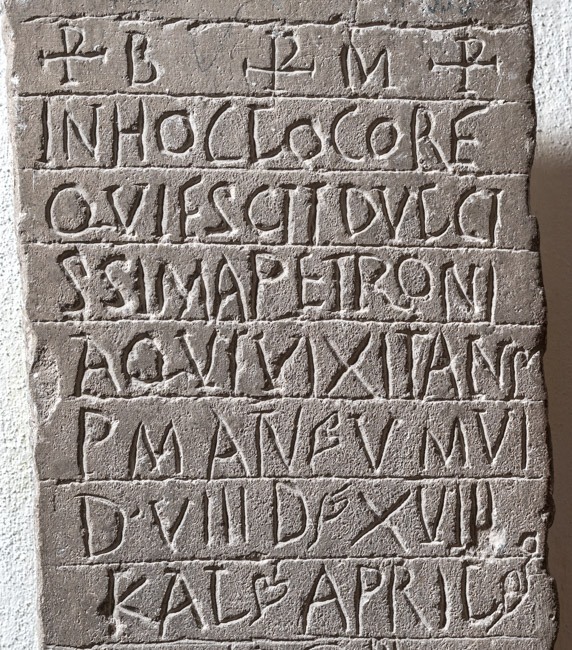 ⳨ B ⳨ M ⳨
INHOCLOCORE
QVIESCITDVLCI
SSIMAPETRONI
AQVIVIXITANS
P M AN V MVI
D VIII D XVIII
KAL APRIL